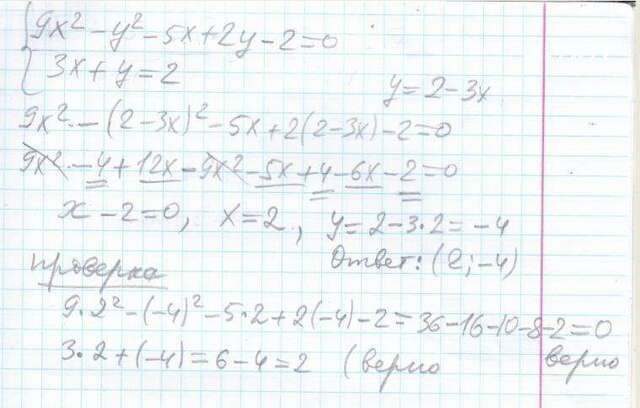 {9x² - y² - 5x + 2y - 2 = 0
3x + y = 2
y = 2 - 3x
9x² - (2 - 3x)² - 5x + 2(2 - 3x) - 2 = 0
9x² - 4 + 12x - 9x² - 5x + 4 - 6x - 2 = 0
x - 2 = 0, x = 2, y = 2 - 3·2 = -4
Ответ: (2; -4)
проверка
9·2² - (-4)² - 5·2 + 2(-4) - 2 = 36 - 16 - 10 - 8 - 2 = 0
верно
3·2 + (-4) = 6 - 4 = 2 (верно